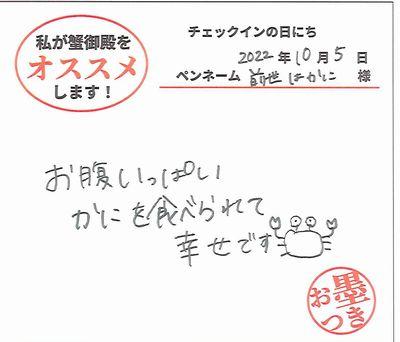 私が蟹御殿を
オススメ
します！
チェックインの日にち
2022年10月5日
ペンネーム 前世はかに 様
お腹いっぱい
かにを食べられて
幸せです
お墨つき